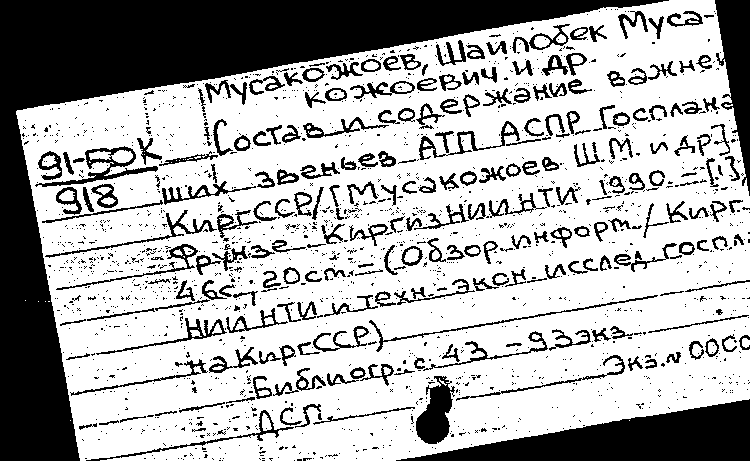 Мусакожоев, Шайлобек Муса-
кожоевич. и др.
91-50К
918
Состав и содержание важней
ших звеньев АТП АСПР Госплана
КиргССР/[Мусакожоев Ш.М. и др]-
Фрунзе: КиргизНИИНТИ, 1990. - [1],
46с.; 20см. - (Обзор. информ. / Кирг.
НИИ НТИ и техн.-экон. исслед. госпл
на КиргССР)
Библиогр.: с. 43 - 93экз
Экз.N 0000
ДСП.